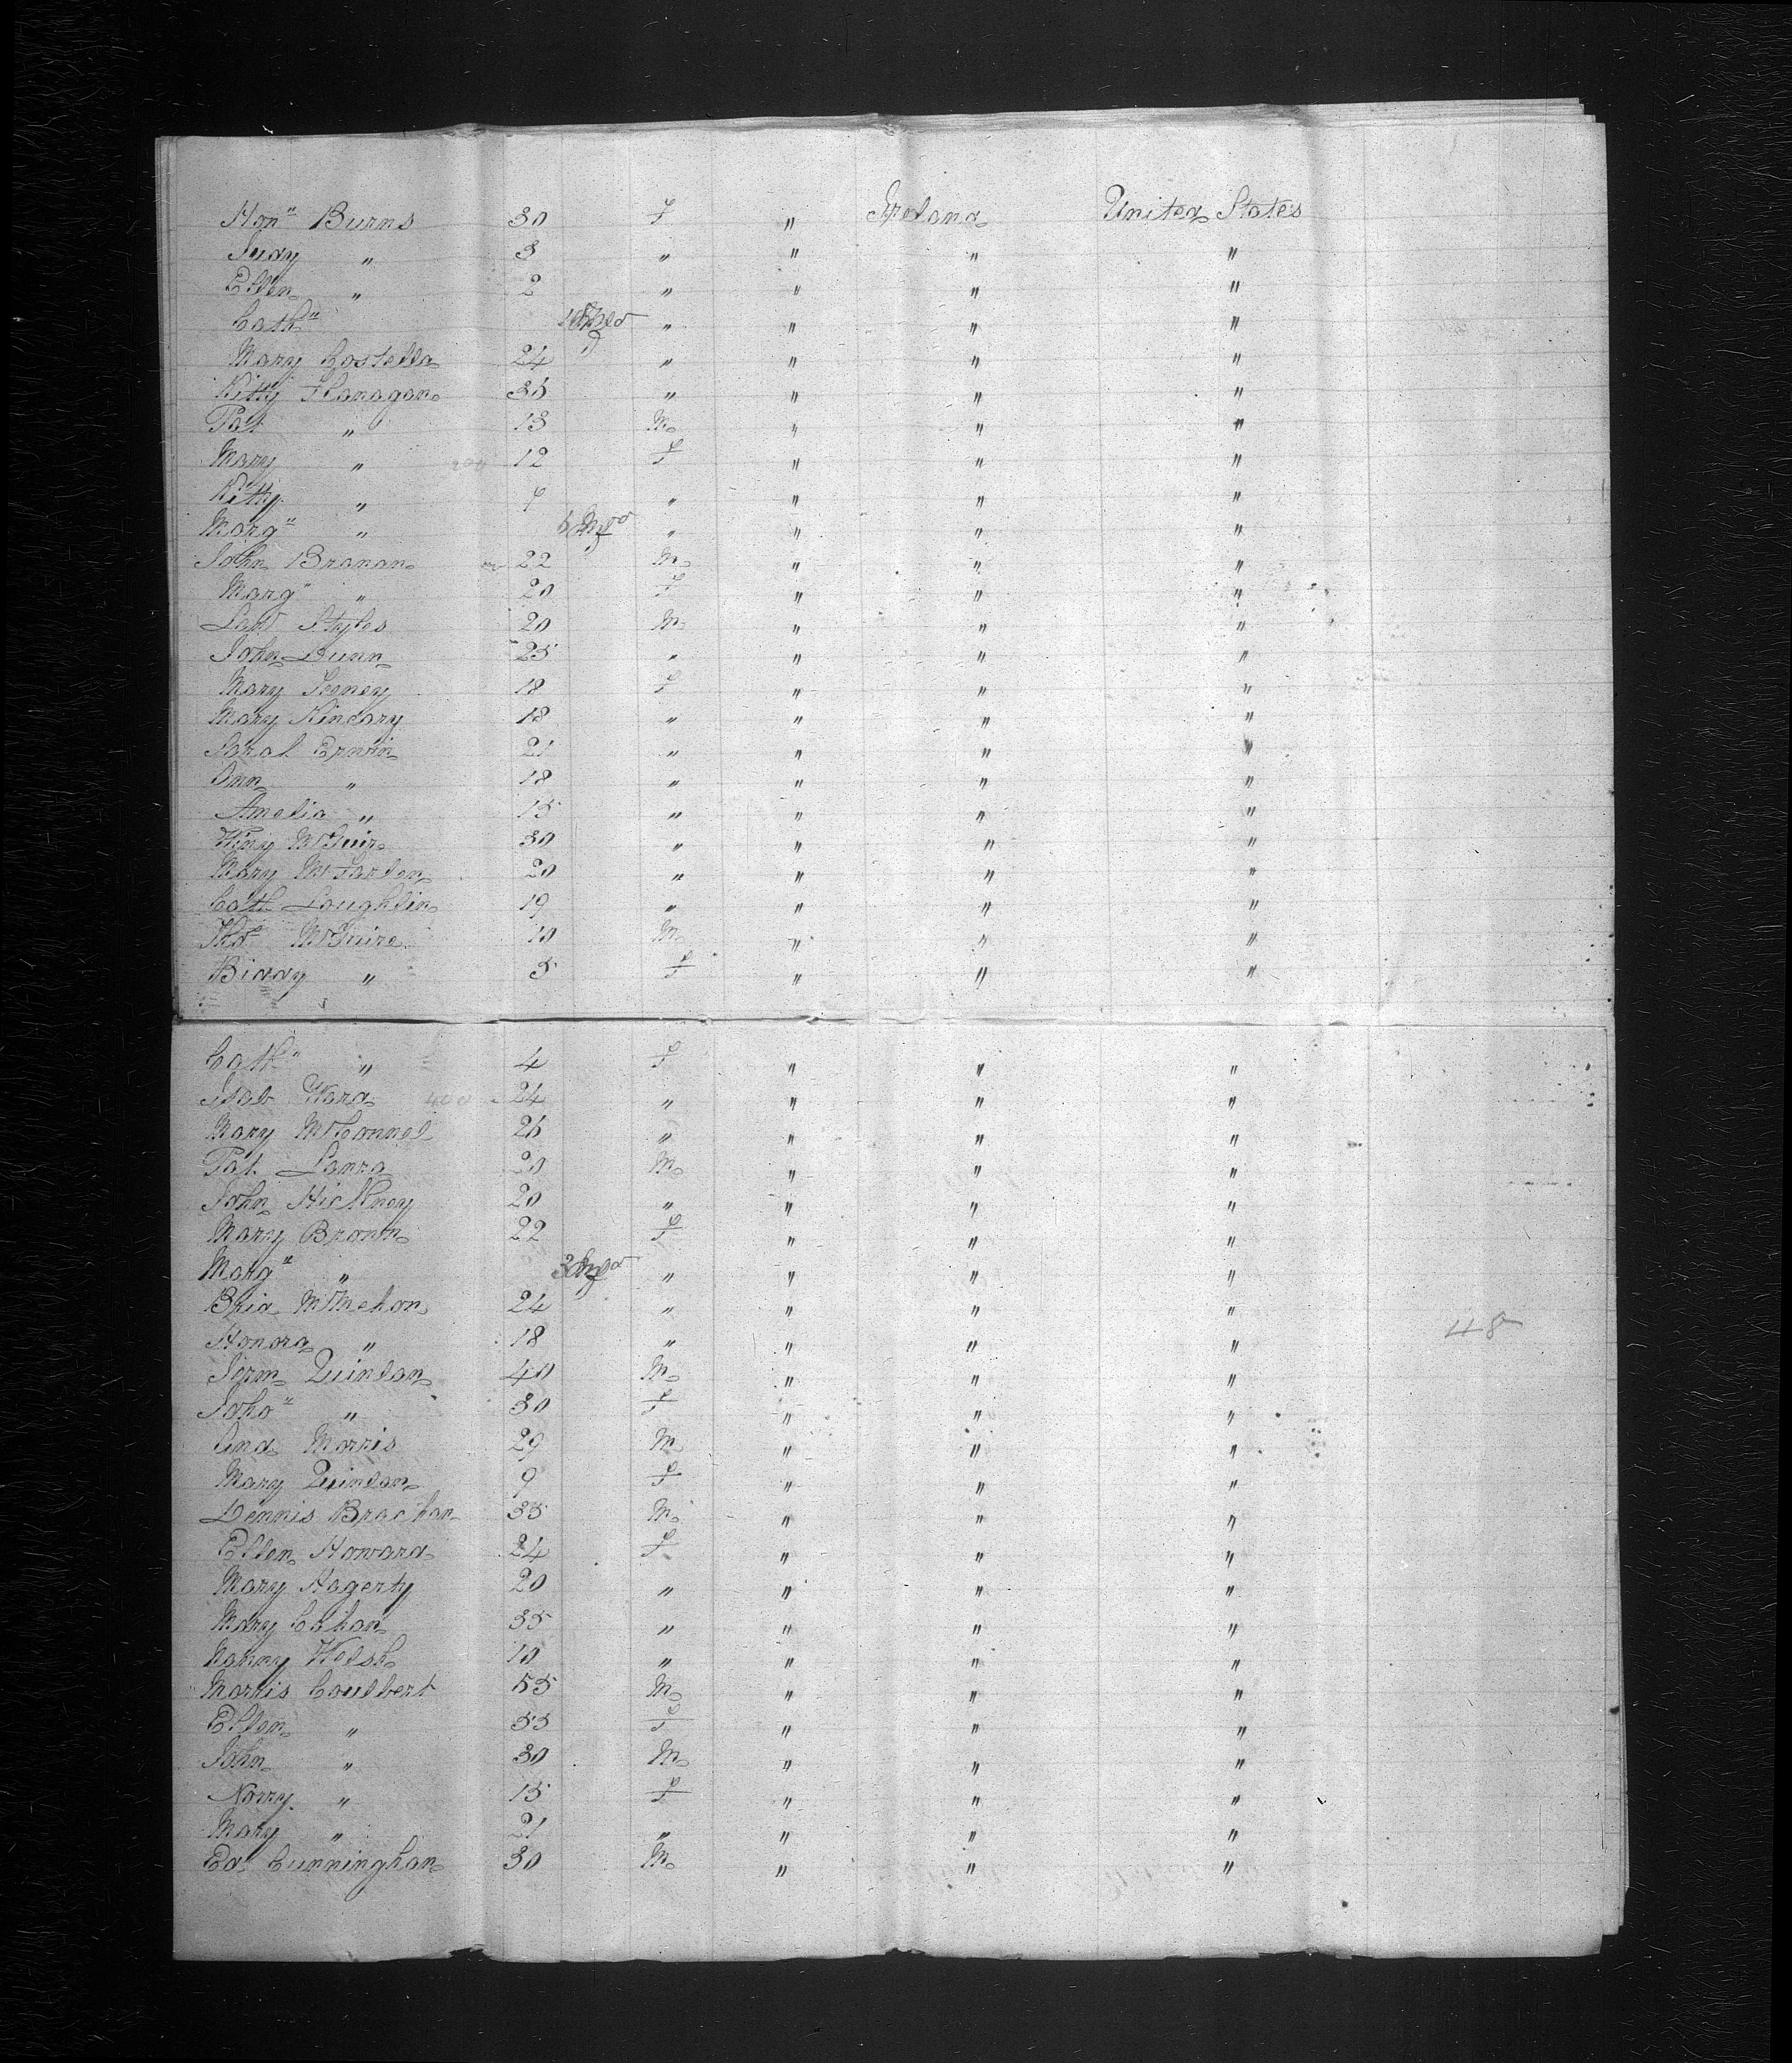 Honª Burns 30 f " Ireland United States
Judy " 3 " " " "
Ellen " 2 " " " "
Cathª " " " "
Mary Costella 24 " " " "
Kitty Flanagan 36 " " " "
Pat " 13 M " " "
Mary " 12 f " " "
Kitty " 9 " " " "
Margª " " " " "
John Branan 22 M " " "
Marg" " 20 f " " "
Lawᵈ Styles 20 M " " "
John Dunn 25 " " " "
Mary Feeney 18 f " " "
Mary Kineary 18 " " " "
Sarah Erwin 21 " " " "
Ann " 18 " " " "
Amelia " 15 " " " "
Winy McGuir 30 " " " "
Mary McFarlen 20 " " " "
Cath Loughlin 19 " " " "
Thoˢ McGuire 10 M " " "
Biddy " 5 f " " "
Cath" " 4 f " " "
Isab Ward 400 24 " " " "
Mary McConnel 26 " " " "
Pat 20 M " " "
John Hickney 20 " " " "
Mary Brown 22 f " " "
Margª " " " " "
Brid McMehon 24 " " " "
Honora " 18 " " " " 48
Jerm Quinlan 40 M " " "
Johaª " 30 f " " "
And Morris 29 M " " "
Mary Quinlan 9 f " " "
Dennis Brachan 35 M " " "
Ellen Howard 24 f " " "
Mary Hagerty 20 " " " "
Mary Cahan 35 " " " "
Nanny Welsh 10 " " " "
Morris Coulbert 55 M " " "
Ellen " 55 f " " "
John " 30 M " " "
Norry " 15 f " " "
Mary " 21 " " " "
Ed Cunninghan 30 M " " "